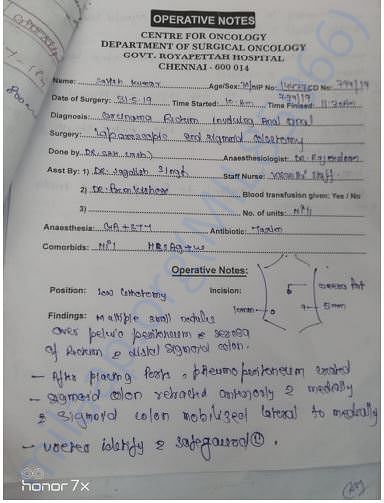 OPERATIVE NOTES
CENTRE FOR ONCOLOGY
DEPARTMENT OF SURGICAL ONCOLOGY
GOVT. ROYAPETTAH HOSPITAL
CHENNAI - 600 014
Name: Satish Kumar Age/Sex: IP No: CD No: 794/19
Date of Surgery: 31-5-19 Time Started: 10 Am Time Finised: 11:30Am
Diagnosis: Carcinoma Rectum involving Anal canal
Surgery: Laparoscopic and sigmoid colostomy
Done by: DR. Anaesthesiologist: DR. Rajendran
Asst By: 1) DR. Jagadish Singh Staff Nurse: Staff
2) DR. Blood transfusion given: Yes / No
3) No. of units: Nil
Anaesthesia: GA + ETT Antibiotic: Taxim
Comorbids: Nil HBsAg +ve
Operative Notes:
Position: low lithotomy Incision:
camera port
10mm 5mm
Findings: Multiple small nodules
over pelvic peritoneum & serosa
of Rectum & distal sigmoid colon.
- After placing ports, pneumoperitoneum created
- sigmoid colon retracted anteriorly & medially
& sigmoid colon mobilized lateral to medially
- ureter identify & safeguard (L).
honor 7x